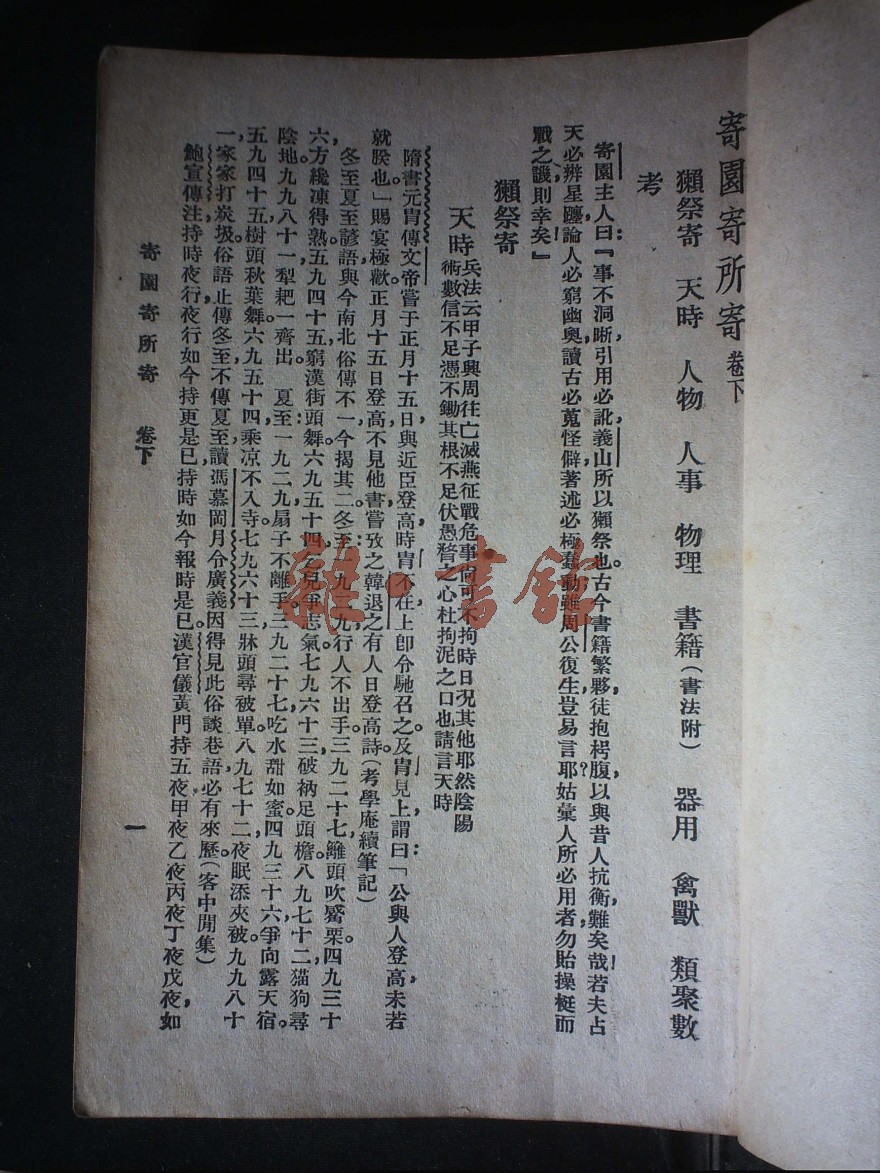 寄園寄所寄 卷下
獺祭寄 天時 人物 人事 物理 書籍(書法附) 器用 禽獸 類聚數
考
寄園主人曰:『事不洞晰,引用必訛,義山所以獺祭也。古今書籍繁夥,徒抱枵腹,以與昔人抗衡,難矣哉!若夫占
天必辨星躔,論人必窮幽奧,讀古必蒐怪僻,著述必極蠢動,雖周公復生,豈易言耶?姑彙人所必用者,勿貽操梃而
戰之譏,則幸矣!』
獺祭寄
天時 兵法云甲子興周往亡滅燕征戰危事尚可不拘時日況其他耶然陰陽
術數信不足憑不鋤其根不足伏愚瞀之心杜拘泥之口也請言天時
隋書元冑傳文帝嘗于正月十五日,與近臣登高,時冑不在,上卽令馳召之。及冑見,上謂曰:「公與人登高,未若
就朕也。」賜宴極歡。正月十五日登高,不見他書,嘗攷之韓退之有人日登高詩。(考學庵續筆記)
冬至夏至諺語,與今南北俗傳不一,今揭其二。冬至:一九二九,行人不出手。三九二十七,籬頭吹觱栗。四九三十
六,方纔凍得熟。五九四十五,窮漢街頭舞。六九五十四,
爭志氣。七九六十三,破衲足頭檐。八九七十二,猫狗尋
陰地。九九八十一,犁耙一齊出。 夏至:一九二九,扇子不離手。三九二十七,吃水甜如蜜。四九三十六,爭向露天宿。
五九四十五,樹頭秋葉舞。六九五十四,乘凉不入寺。七九六十三,牀頭尋被單。八九七十二,夜眠添夾被。九九八十
一,家家打炭圾。俗語止傳冬至,不傳夏至,讀馮慕岡月令廣義,因得見此俗談巷語,必有來歷。(客中閒集)
鮑宣傳注,持時夜行,夜行如今持更是已。持時如今報時是已。漢官儀黃門持五夜,甲夜乙夜丙夜丁夜戊夜,如
寄園寄所寄 卷下
一
雜·書館